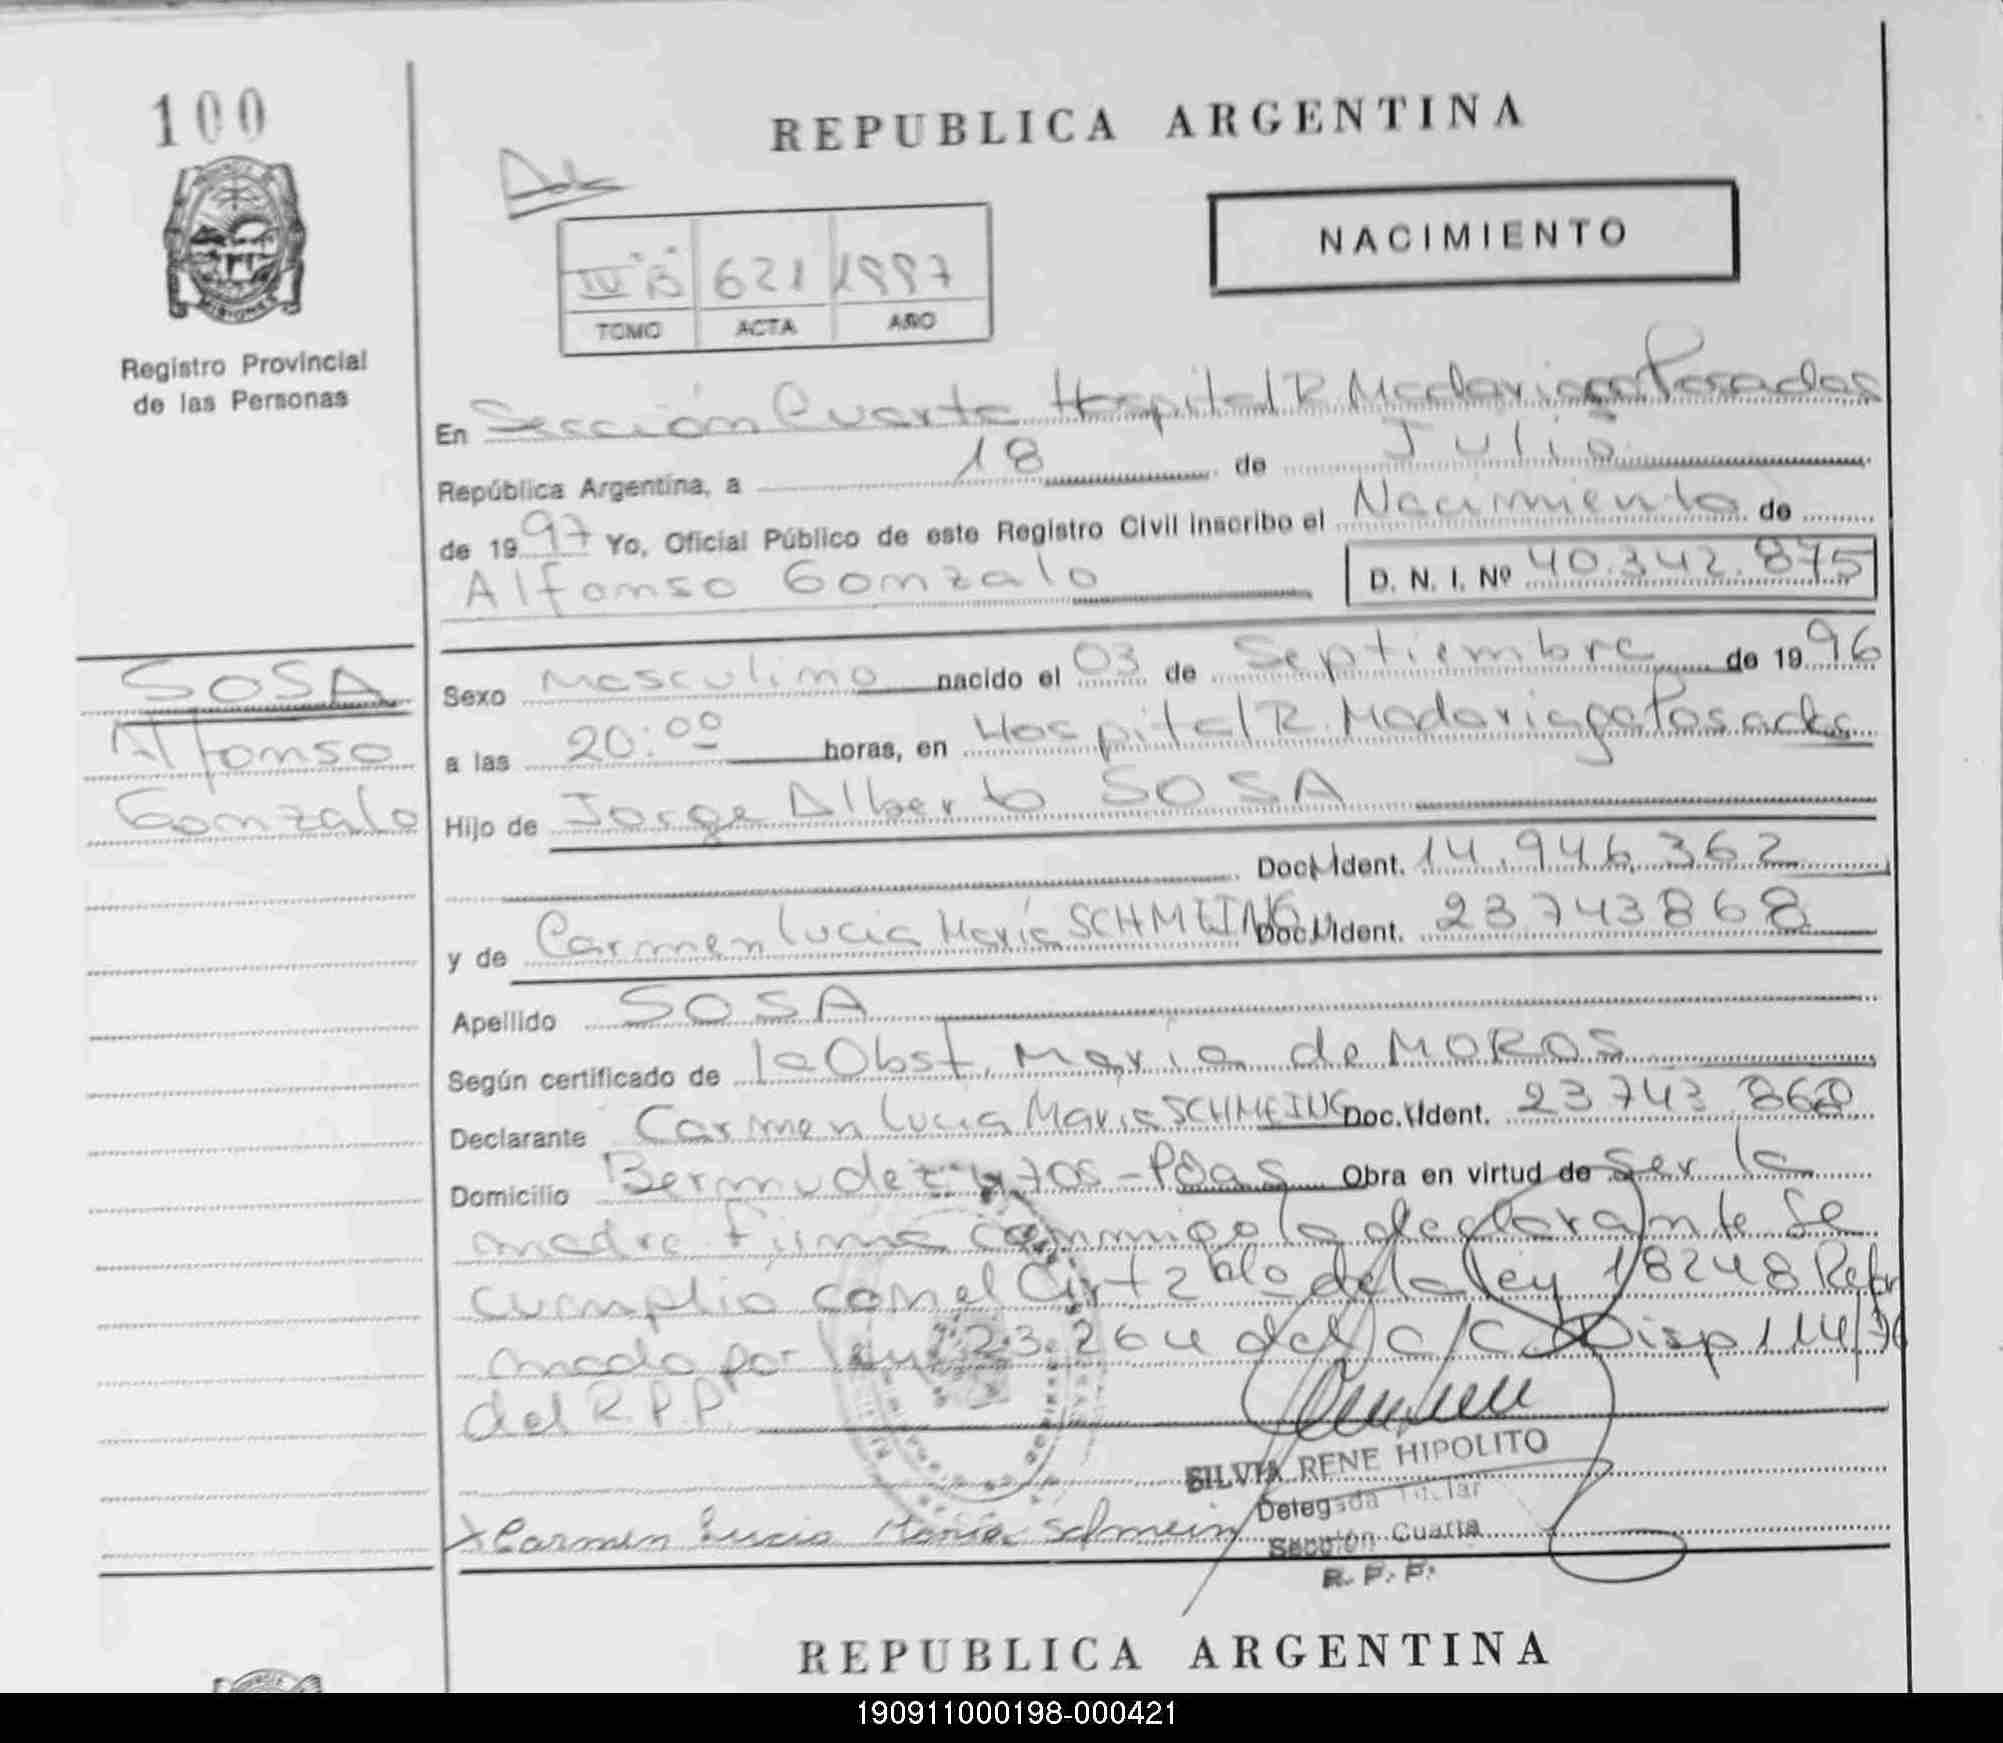 100
REPUBLICA ARGENTINA
NACIMIENTO
IV "B" 621 1997
TOMO ACTA AÑO
Registro Provincial
de las Personas
En Sección Cuarta Hospital R. Madariaga Posadas
República Argentina, a 18 de Julio
de 1997 Yo, Oficial Público de este Registro Civil inscribo el Nacimiento de
Alfonso Gonzalo D. N. I. Nº 40.342.875
SOSA
Alfonso
Gonzalo
Sexo Masculino nacido el 03 de Septiembre de 1996
a las 20:00 horas, en Hospital R. Madariaga Posadas
Hijo de Jorge Alberto SOSA
Doc. Ident. 14.946.362
y de Carmen Lucia María SCHMEING Doc. Ident. 23743868
Apellido SOSA
Según certificado de la Obst. Maria de MOROS
Declarante Carmen Lucia Maria SCHMEING Doc. Ident. 23743868
Domicilio Bermudez 4705 - Pdas Obra en virtud de Ser la
madre firma conmigo la declarante Se
cumplio con el Art 2 do de la ley 18248 Refor
mado por ley 23.264 del C/C. Disp 114/96
del R.P.P.
SILVIA RENE HIPOLITO
Delegada Titular
Sección Cuarta
R. P. P.
X Carmen Lucia Maria Schmein
REPUBLICA ARGENTINA
190911000198-000421